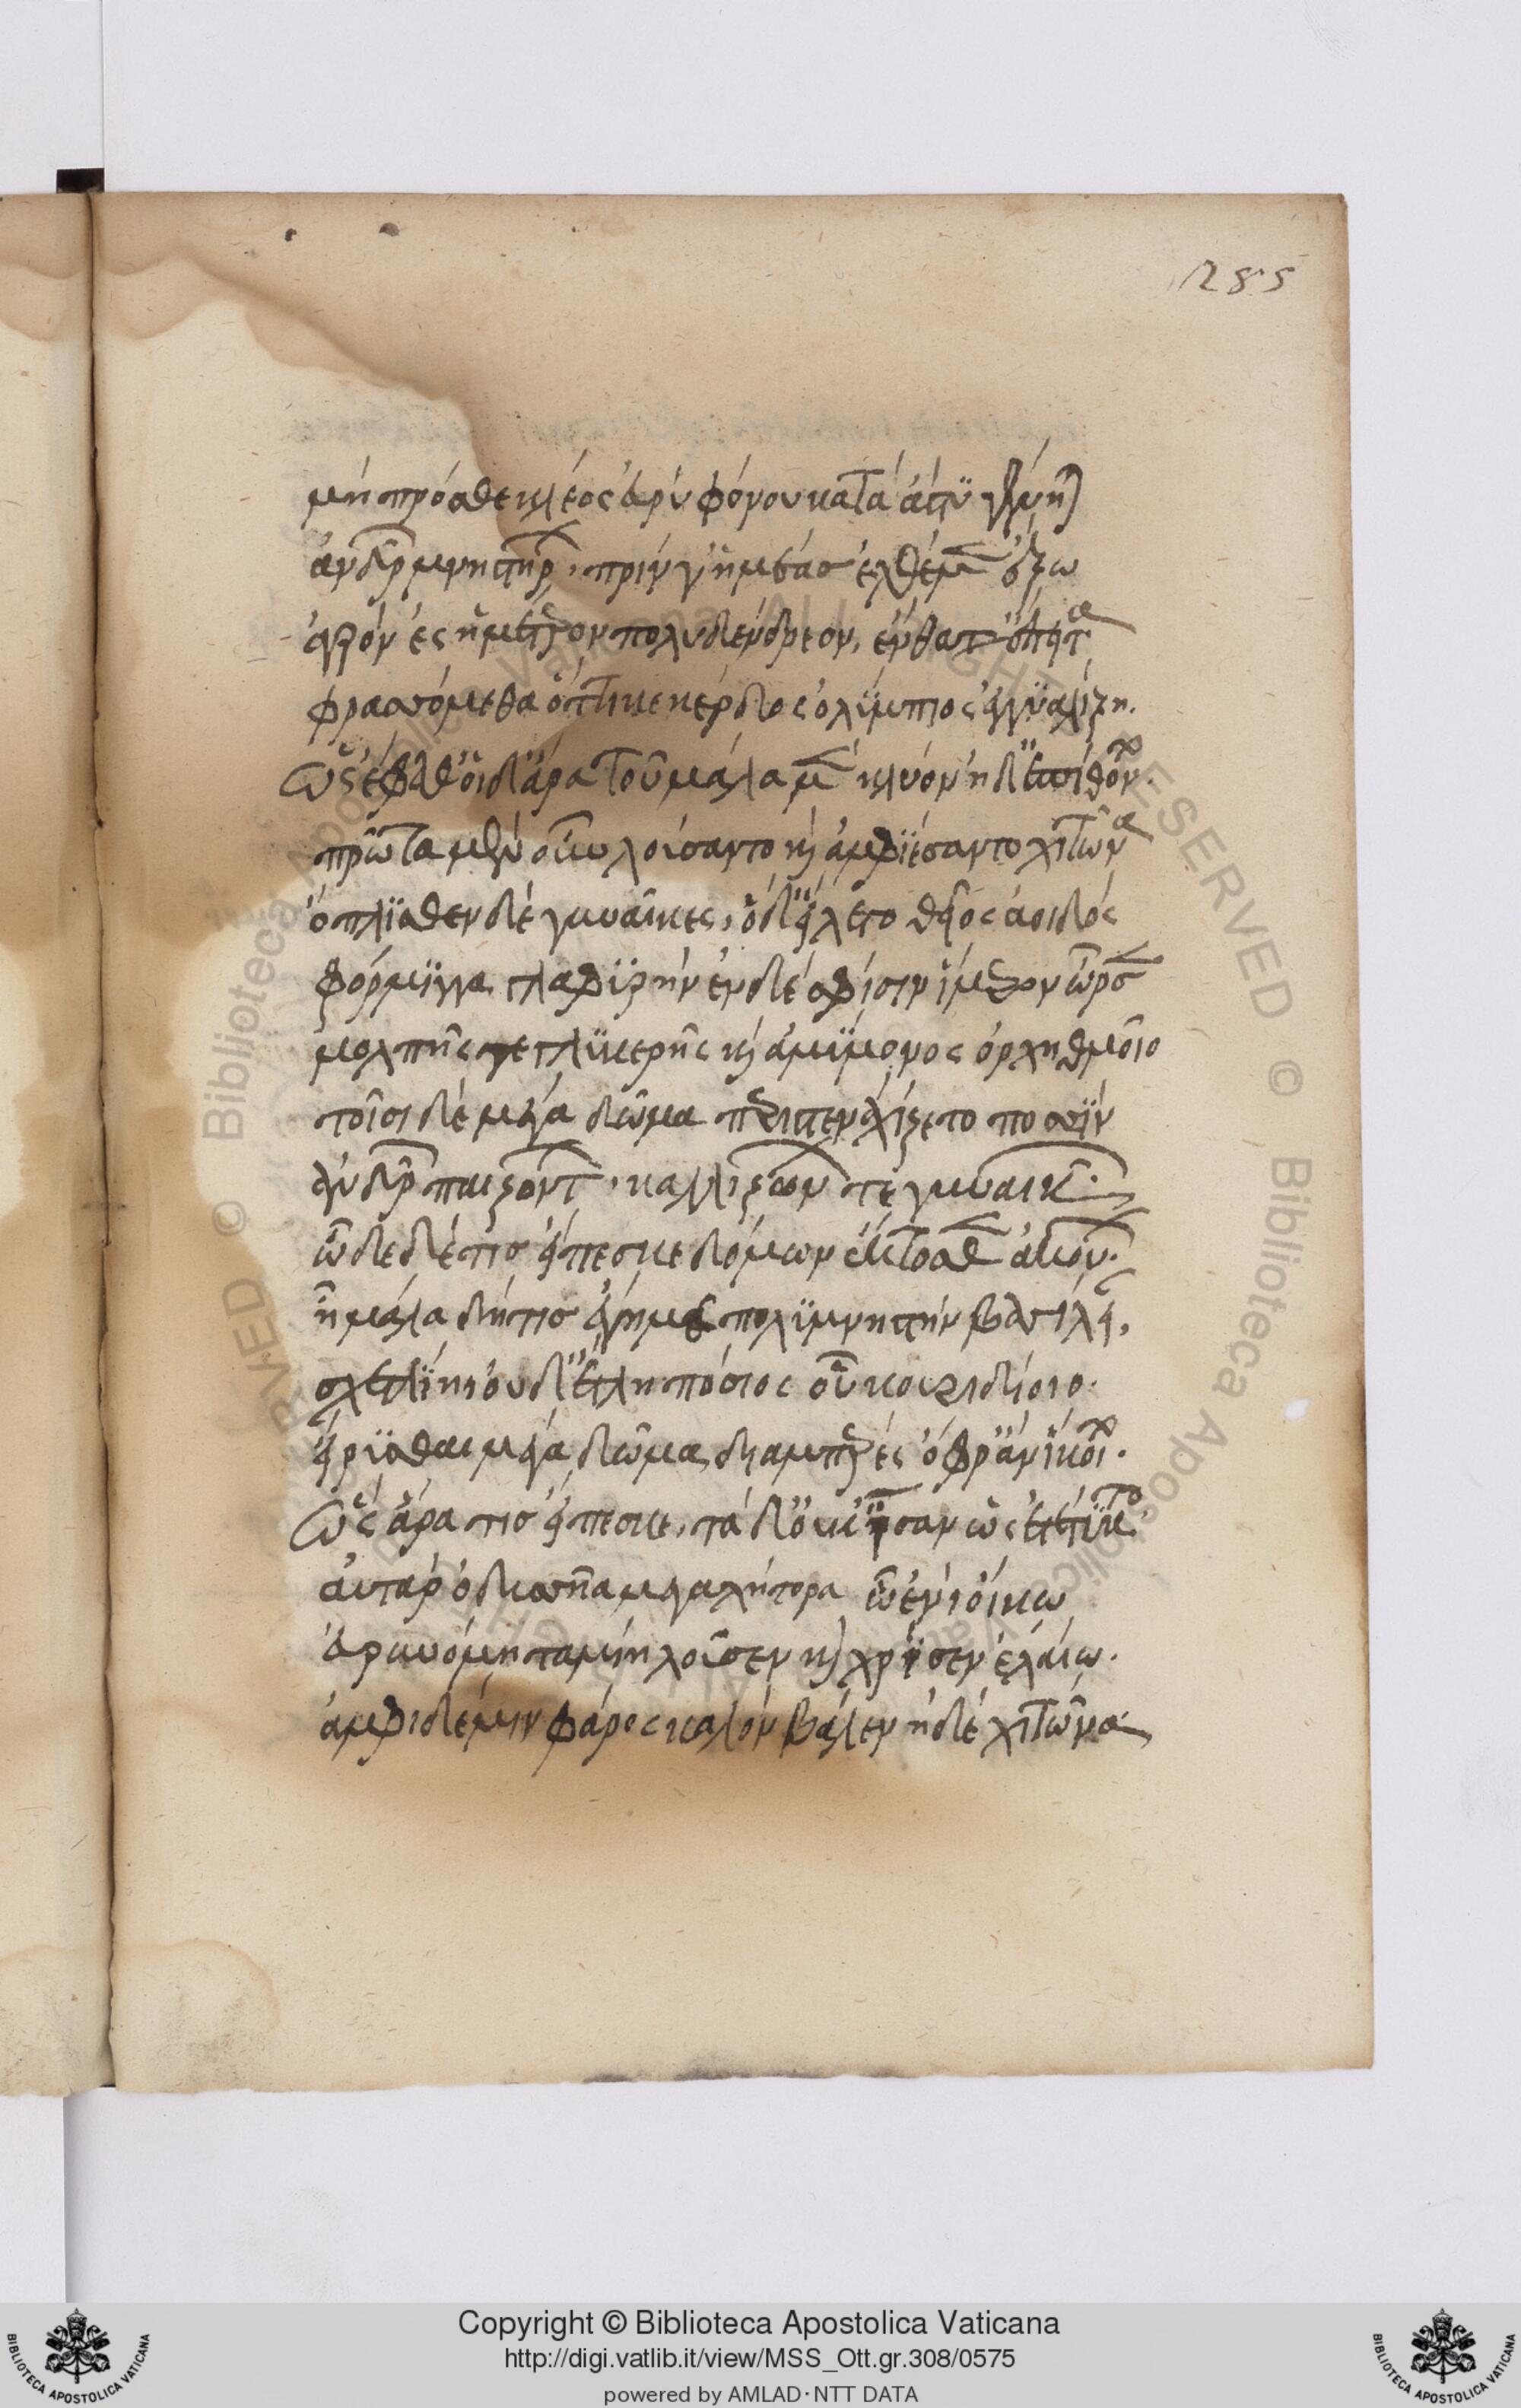 285
μὴ πρόσθε κλέος εὐρὺ φόνου κατὰ ἄστυ γένηται
ἀνδρῶν μνηστήρων, πρίν γ' ἡμέας ἐλθέμεν ἔξω
ἀγρὸν ἐς ἡμέτερον πολυδένδρεον, ἔνθα δ' ἔπειτα
φρασσόμεθα ὅττι κε κέρδος ὀλύμπιος ἐγγυαλίξῃ.
Ὣς ἔφαθ' οἱ δ' ἄρα τοῦ μάλα μὲν κλύον ἠδ' ἐπίθοντο.
πρῶτα μὲν οὖν λούσαντο καὶ ἀμφιέσαντο χιτῶνα
ὅπλισθεν δὲ γυναῖκες, ὁ δ' εἵλετο θεῖος ἀοιδός
φόρμιγγα γλαφυρὴν ἐν δέ σφισιν ἵμερον ὦρσεν
μολπῆς τε γλυκερῆς καὶ ἀμύμονος ὀρχηθμοῖο
τοῖσι δὲ μέγα δῶμα περιστεναχίζετο ποσσὶν
ἀνδρῶν παιζόντων, καλλιζώνων τε γυναικῶν.
ὧδε δέ τις εἴπεσκε δόμων ἔκτοσθεν ἀκούων.
ἦ μάλα δή τις ἔγημε πολυμνήστην βασίλειαν,
σχετλίη, οὐδ' ἔτλη πόσιος οὗ κουριδίοιο.
εἴρυσθαι μέγα δῶμα διαμπερὲς ὄφρ' ἂν ἵκοιτο.
Ὣς ἄρα τις εἴπεσκε, τὰ δ' οὐκ ἴσαν ὡς ἐτέτυκτο.
αὐτὰρ ὀδυσσῆα μεγαλήτορα ᾧ ἐνὶ οἴκῳ
εὐρυνόμη ταμίη λοῦσεν καὶ χρῖσεν ἐλαίῳ.
ἀμφὶ δέ μιν φᾶρος καλὸν βάλεν ἠδὲ χιτῶνα
Copyright © Biblioteca Apostolica Vaticana
http://digi.vatlib.it/view/MSS_Ott.gr.308/0575
powered by AMLAD·NTT DATA